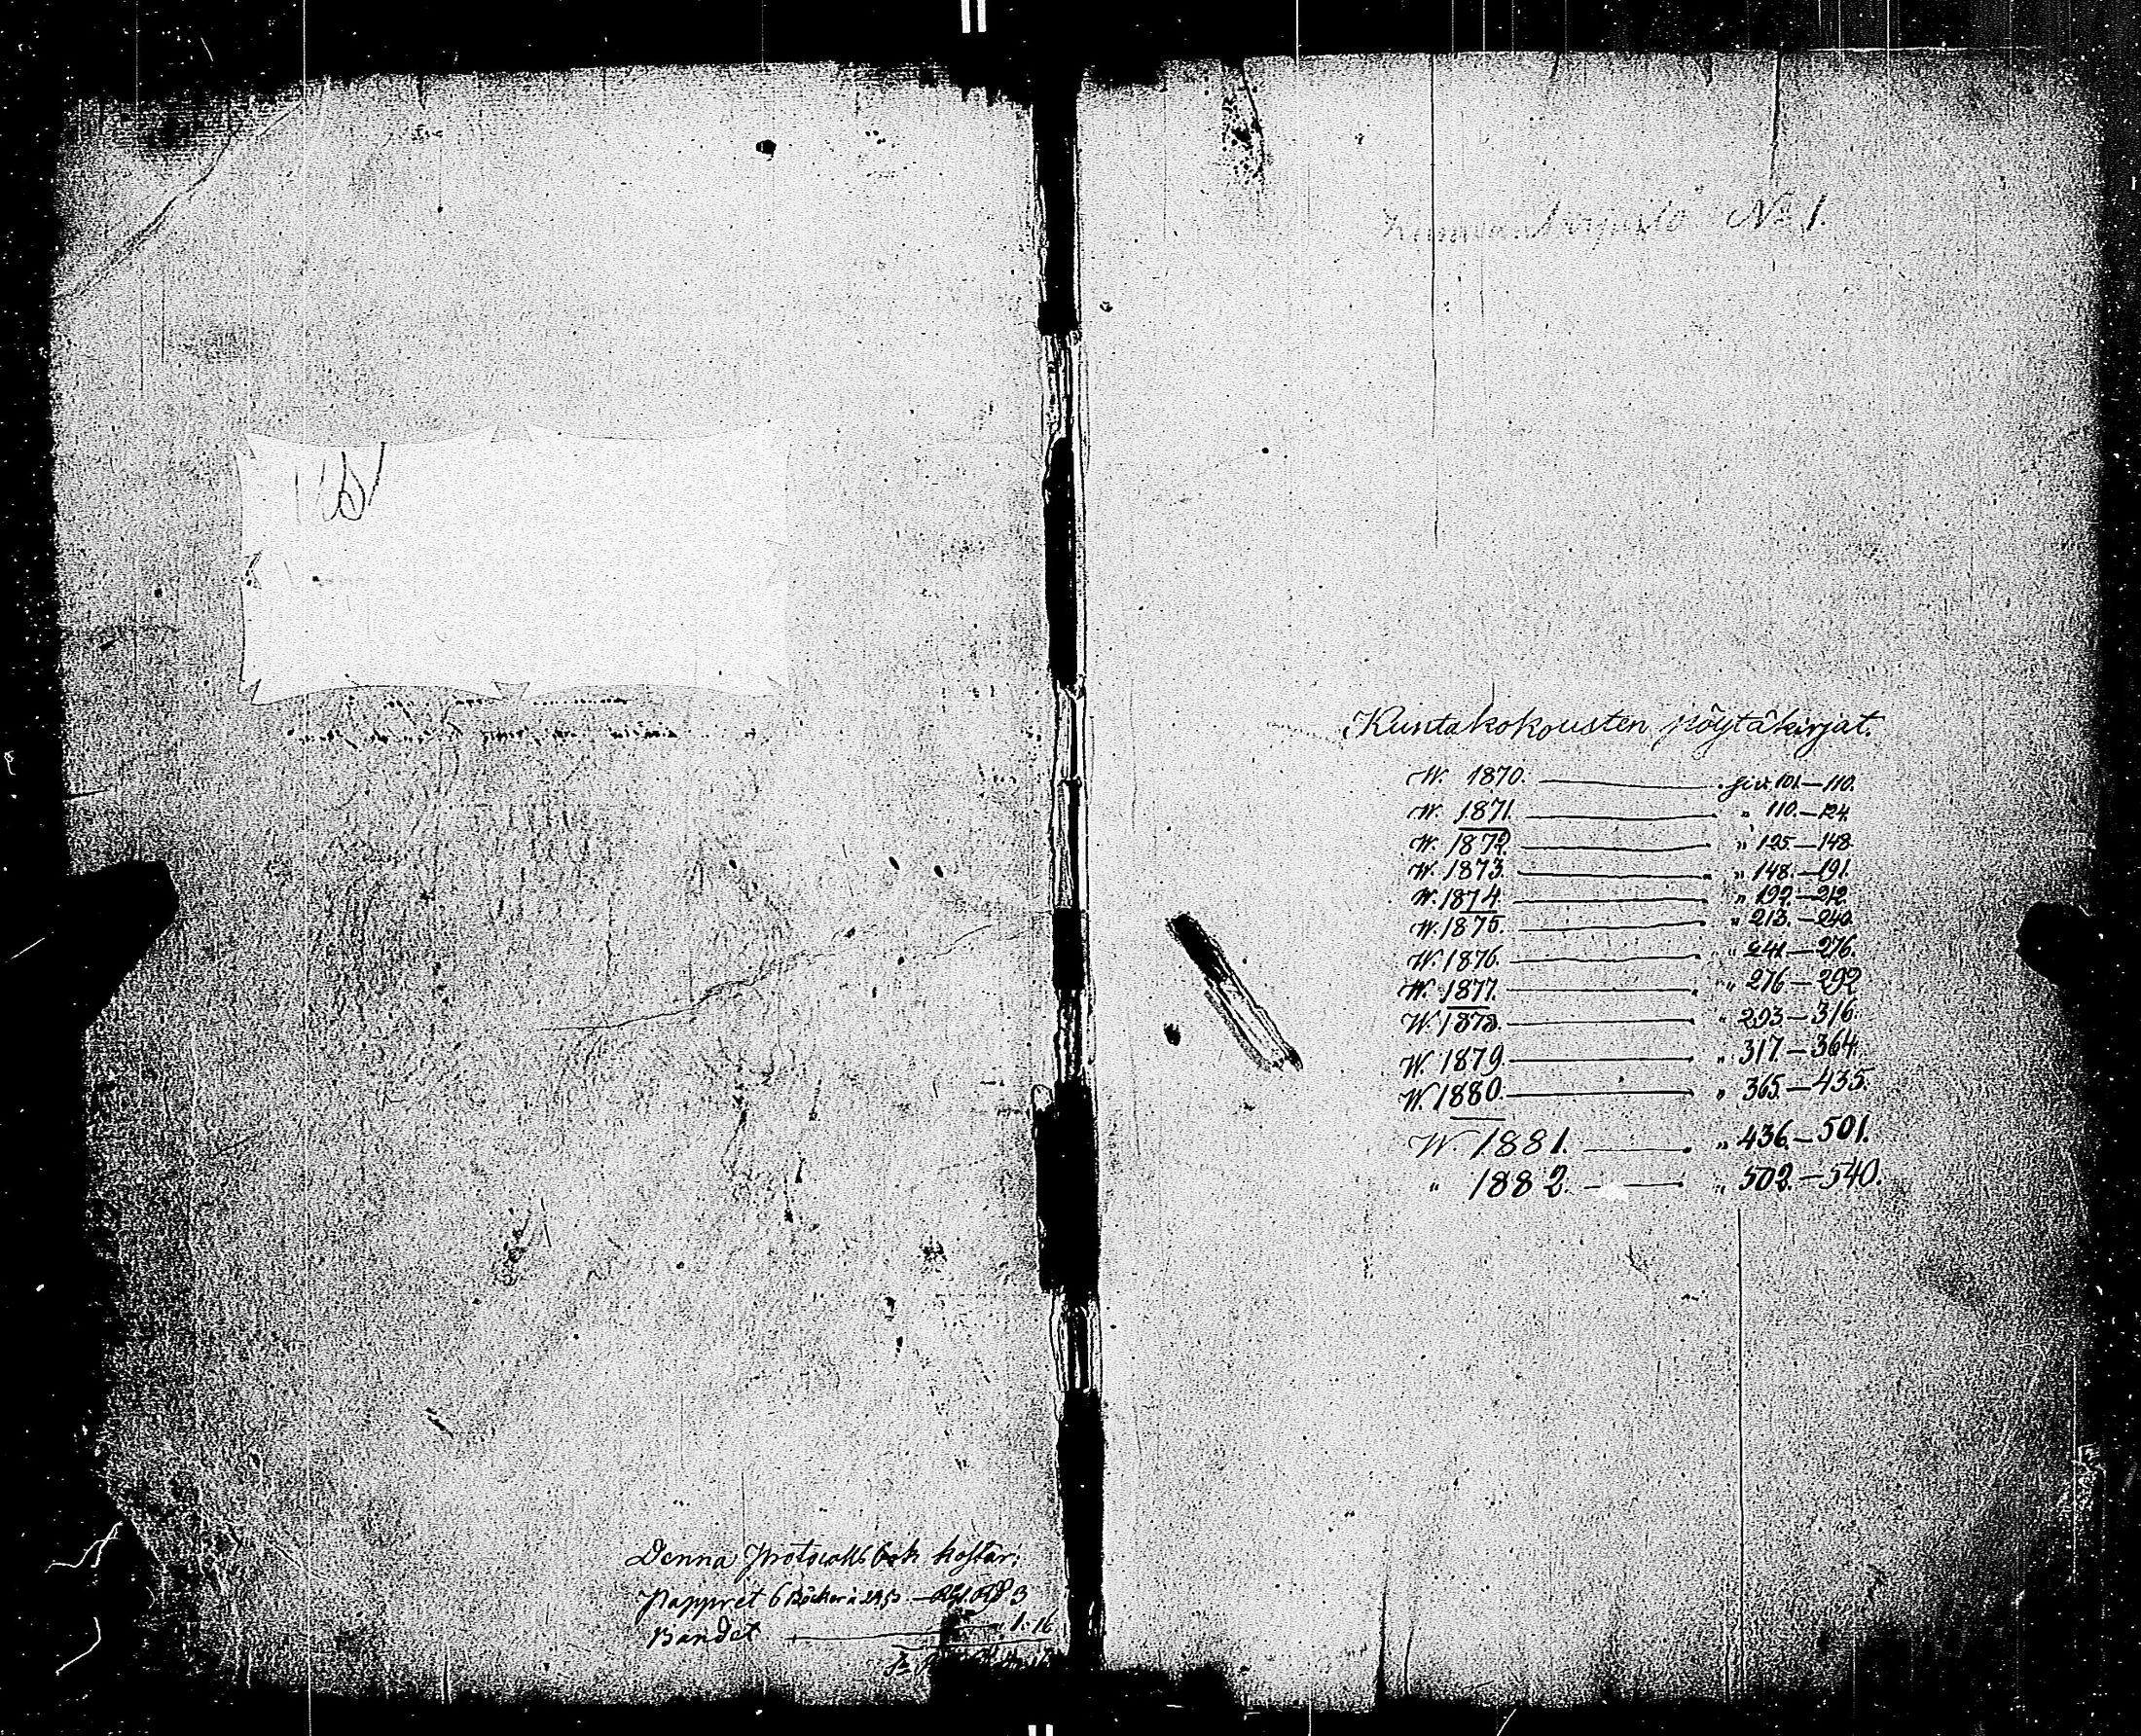 Denna Protocolls bok kostar:
Pappret 6 Böcker à
Bandet 1:16
No 1.
Kuntakokousten pöytäkirjat.
W. 1870. — siv. 101.—110.
W. 1871. — " 110.—124.
W. 1872. — " 125.—148.
W. 1873. — " 148.—191.
W. 1874. — " 192.—212.
W. 1875. — " 213.—240.
W. 1876. — " 241.—276.
W. 1877. — " 276.—292.
W. 1878. — " 293.—316.
W. 1879. — " 317.—364.
W. 1880. — " 365.—435.
W. 1881. — " 436.—501.
" 1882. — " 502.—540.